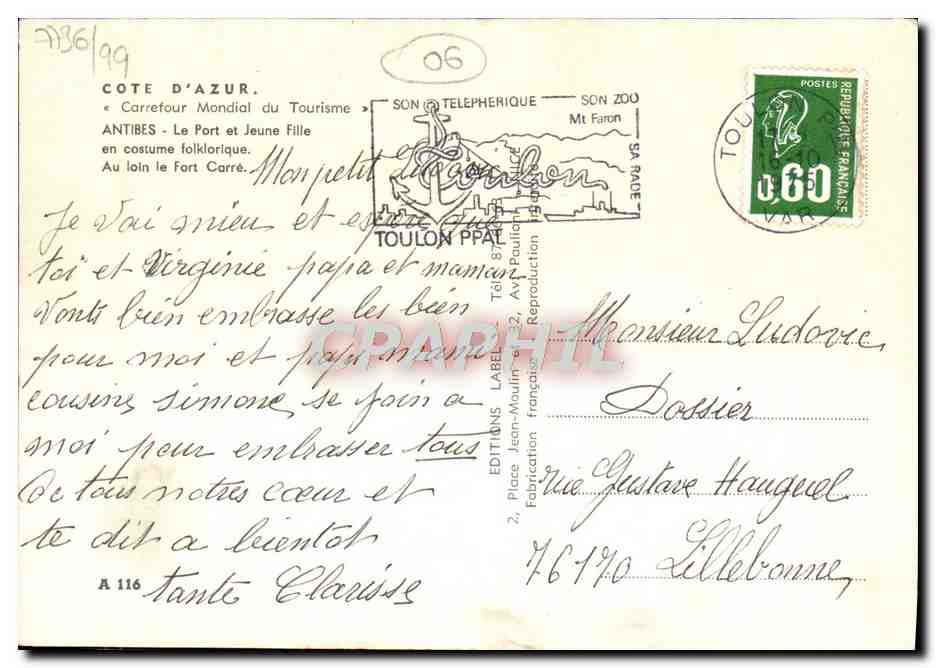 7736/99
06
COTE D'AZUR.
« Carrefour Mondial du Tourisme »
ANTIBES - Le Port et Jeune Fille
en costume folklorique.
Au loin le Fort Carré.
SON TELEPHERIQUE SON ZOO
Mt Faron
SA RADE
Toulon
TOULON PPAL
TOULON
VAR
POSTES
REPUBLIQUE FRANÇAISE
0,60
Mon petit
Je vai mieu et espère que
toi et Virginie papa et maman
Vonts bien embrasse les bien
pour moi et papi mami
cousine, simone, se join a
moi pour embrasser tous
de tous notres cœur et
te dit a bientot
tante Clarisse
A 116
EDITIONS LABEL Tél. 87
2, Place Jean-Moulin et 32, Av. Pauliani NICE
Fabrication française Reproduction
Monsieur Ludovic
Dossier
rue Gustave Hauguel
76170 Lillebonne
CPAPHIL